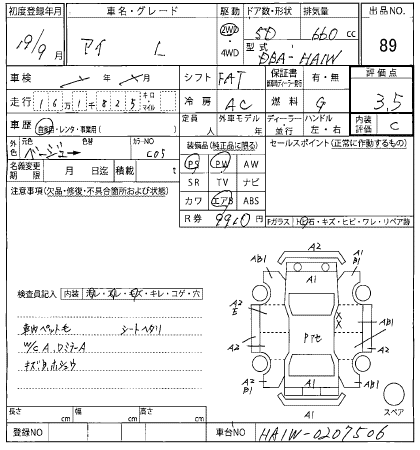 初度登録年月 車名・グレード 駆動 ドア数・形状 排気量 出品No.
19/9月 アイ L 2WD 4WD 5D 660cc 89
型式 DBA-HA1W
車検 年 月 シフト FAT 保証書 有・無 評価点
走行 16万1千825 キロ・マイル 冷房 AC 燃料 G 3.5
車歴 自家用・レンタ・事業用( ) 定員 人 外車モデル 年 ディーラー 並行 ハンドル 左・右 内装評価 C
外色 元色 ベージュー 色替 カラーNO C05
装備品(純正品に限る) セールスポイント(正常に作動するもの)
名義変更期限 月 日迄 積載 t
PS PW AW
SR TV ナビ
カワ エアB ABS
R券 9960円
注意事項(欠品・修復・不具合箇所および状態)
Fガラス トビ石・キズ・ヒビ・ワレ・リペア跡
検査員記入 内装 汚レ・スレ・キズ・キレ・コゲ・穴
車内ペット毛 シートヘタリ
W/C A、DミラーA
キズ有、ホシュウ
A2
AB1 A1 A1 B1
A2 E X X
Prt
A2 A2 AB1 A2
AB1 A2 A1 AB1
A1
スペア
長さ cm 幅 cm 高さ cm
登録NO 車台No. HA1W-0207506